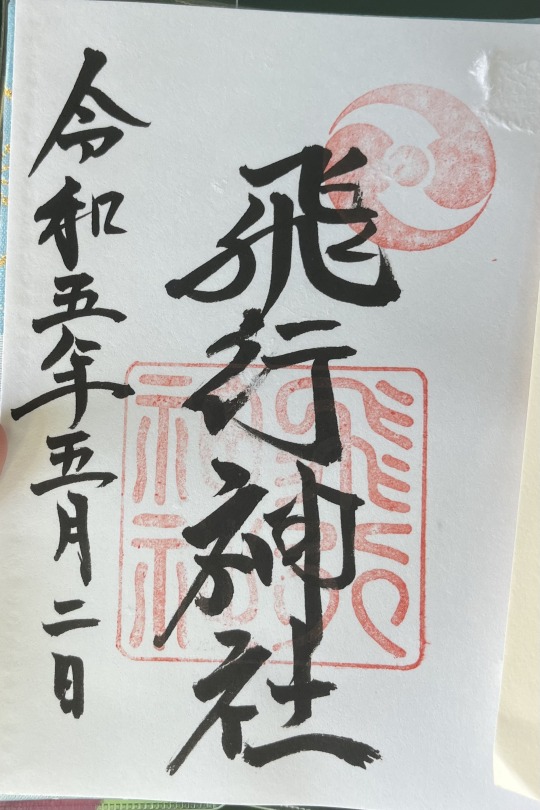 飛行神社
令和五年五月二日
飛行
神社